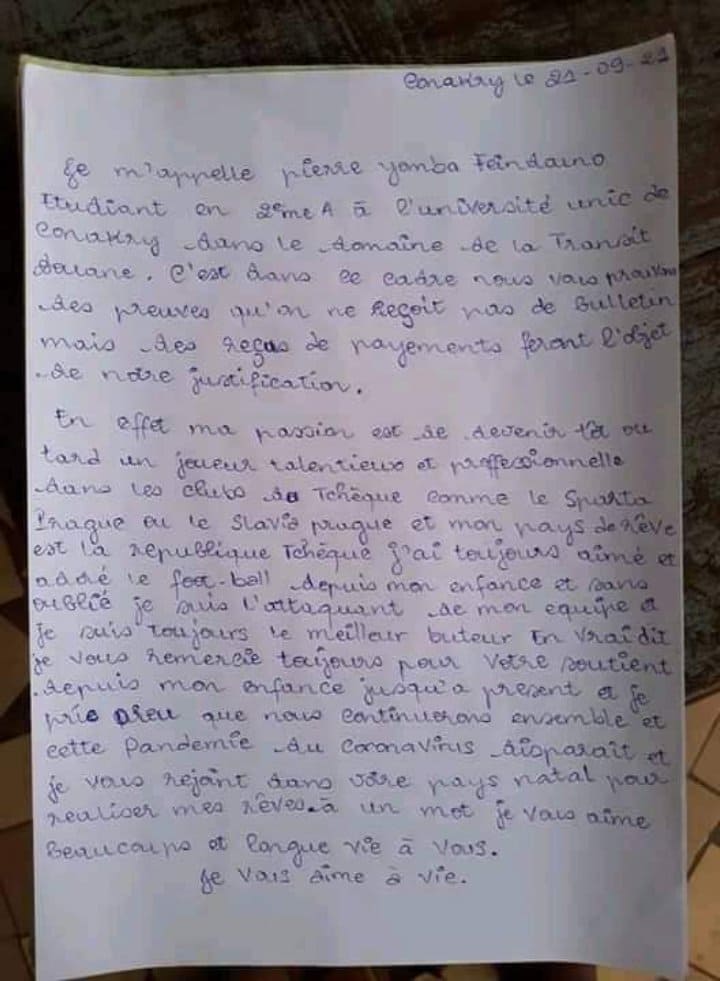 Conakry le 21-09-21
Je m'appelle pierre yomba Feindouno
Etudiant en 2eme A à l'université unic de
Conakry dans le domaine de la Transit
douane. C'est dans ce cadre nous vous prouvons
des preuves qu'on ne Reçoit pas de Bulletin
mais des reçus de payements feront l'objet
de notre justification.
En effet ma passion est de devenir tôt ou
tard un joueur talentieux et proffessionnelle
dans les clubs de Tchèque comme le Sparta
Prague ou le Slavia prague et mon pays de rêve
est la republique Tchèque j'ai toujours aimé et
adoré le foot-ball depuis mon enfance et sans
oublié je suis l'attaquant de mon equipe et
je suis toujours le meilleur buteur En vrai dit
je vous remercie toujours pour votre soutient
depuis mon enfance jusqu'a present et je
prie Dieu que nous continuerons ensemble et
cette Pandemie du coronavirus disparaît et
je vous rejoint dans votre pays natal pour
realiser mes rêves. à un mot je vous aime
Beaucoups et longue vie à vous.
Je vous aime à vie.